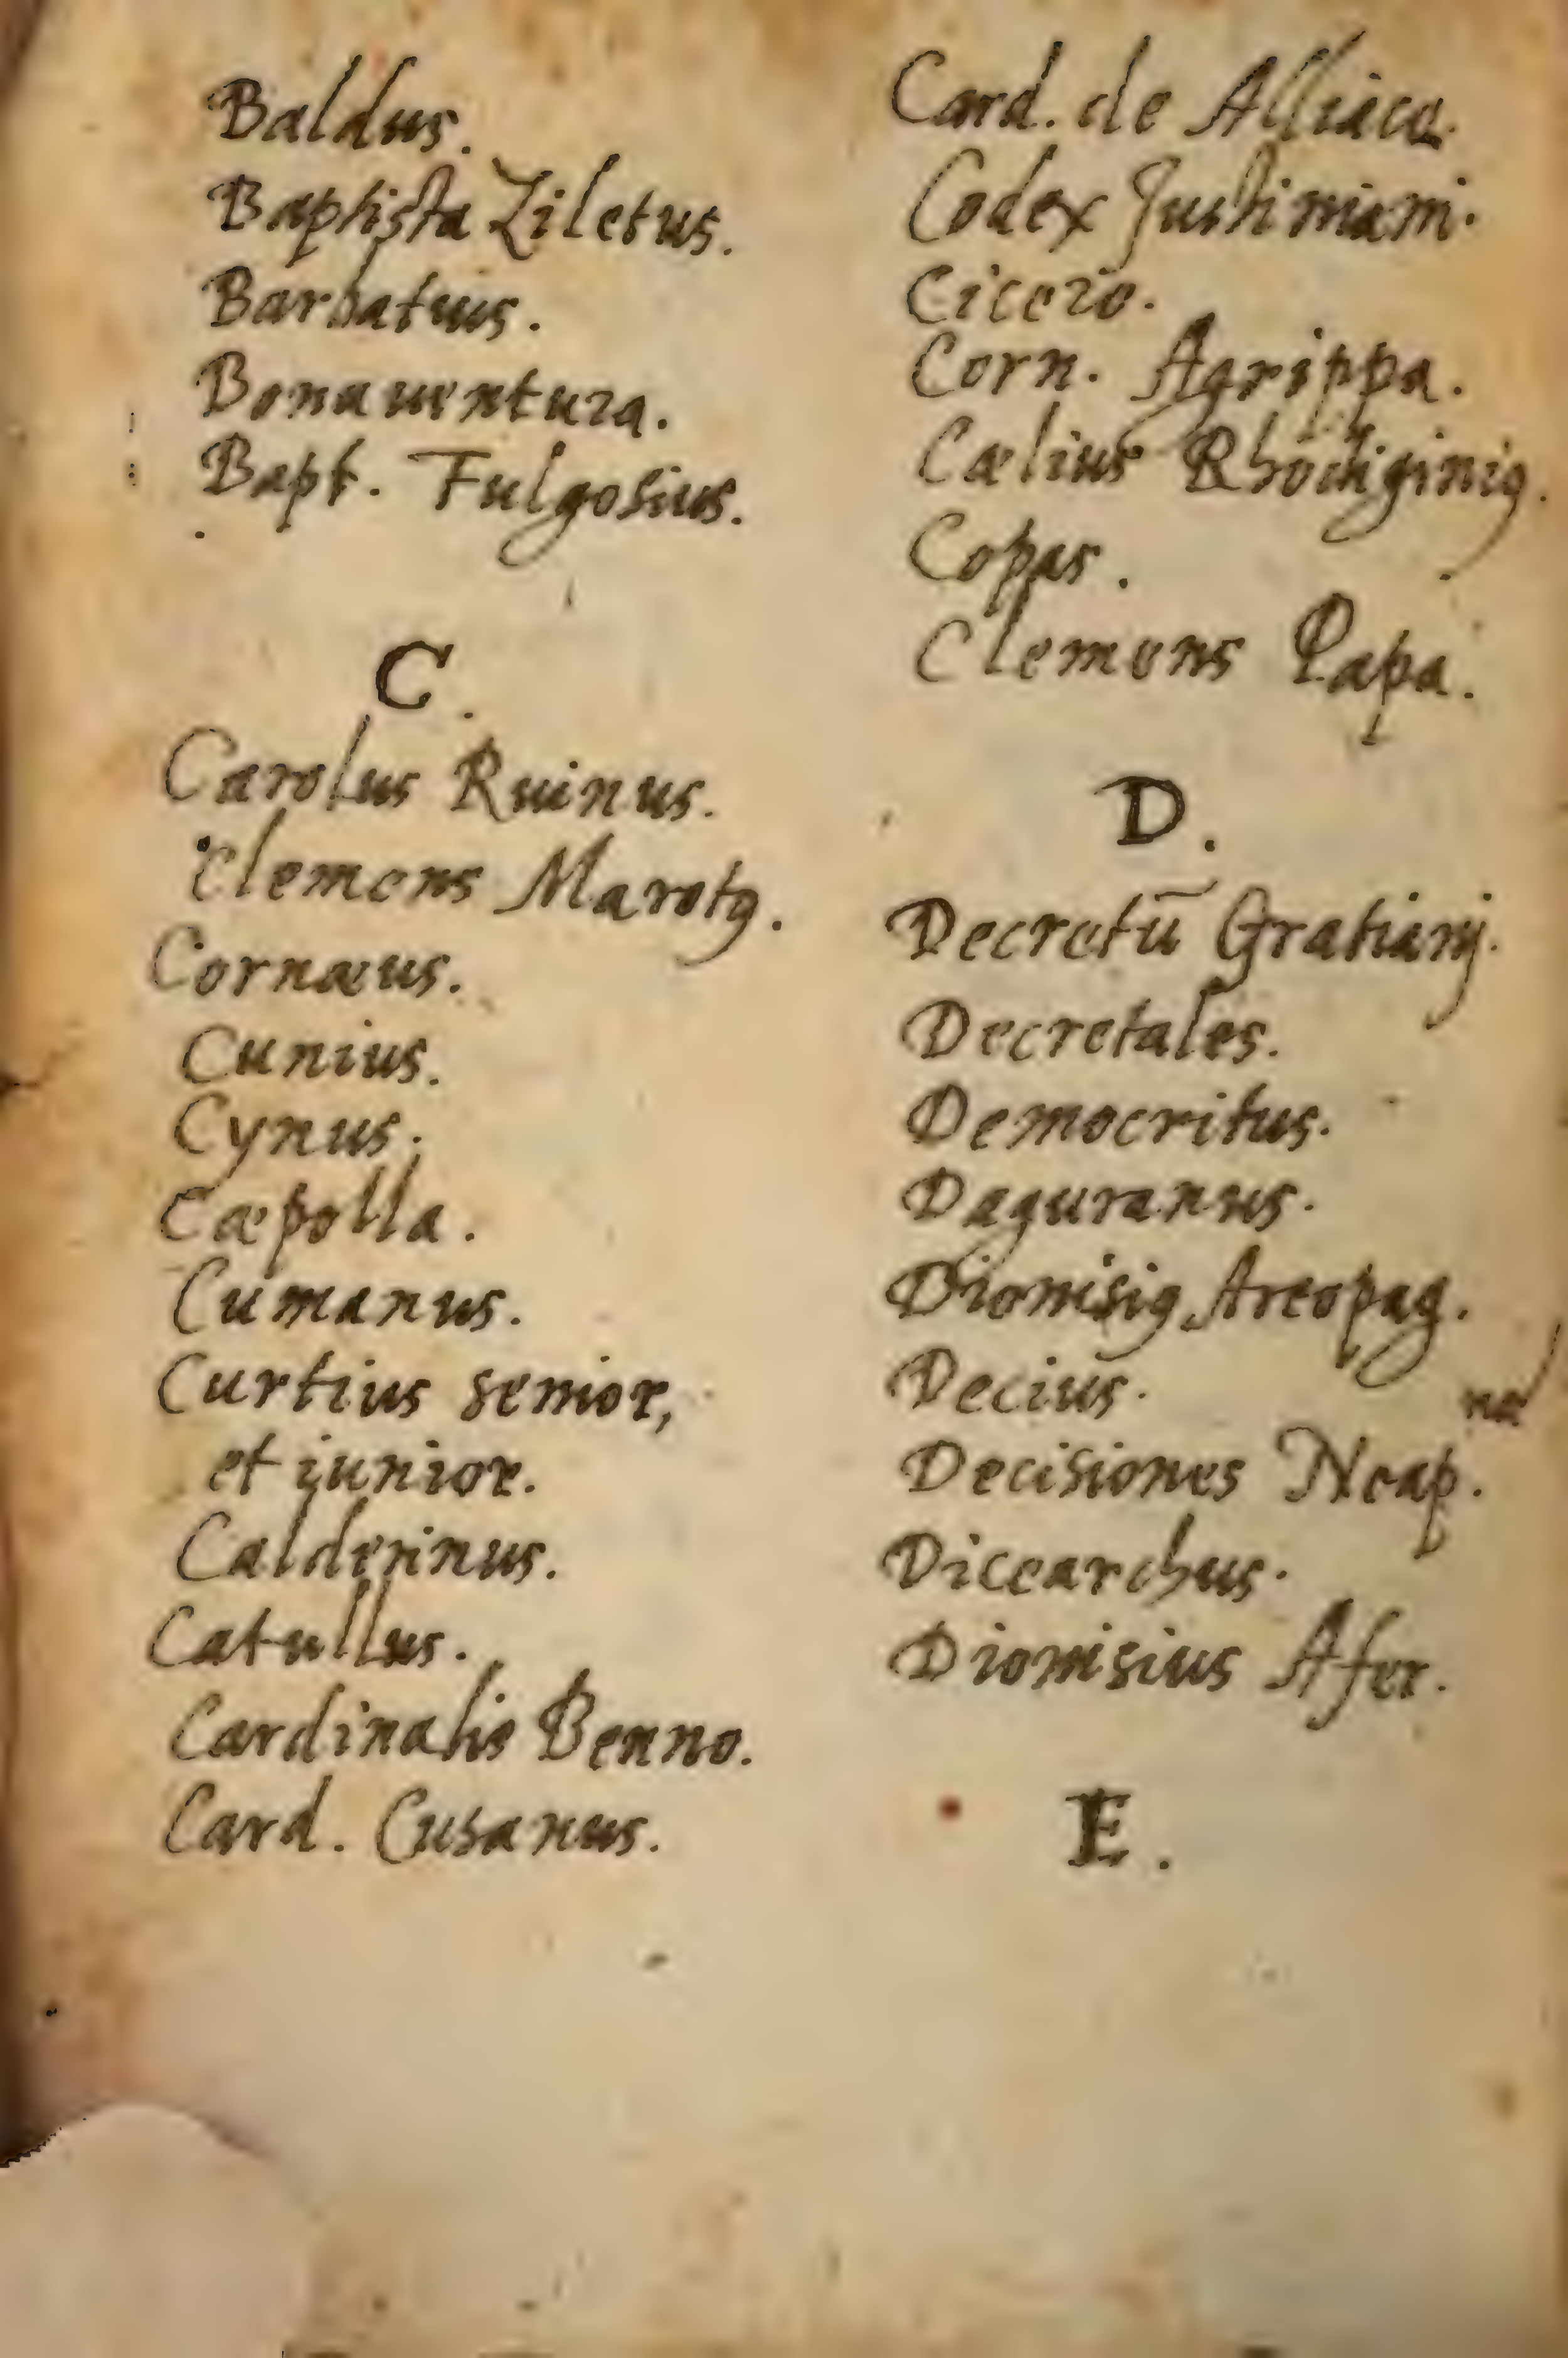 Baldus.
Baptista Ziletus.
Barbatius.
Bonauentura.
Bapt. Fulgosius.
C.
Carolus Ruinus.
Clemens Marotꝰ.
Cornæus.
Cunius.
Cynus.
Cæpolla.
Cumanus.
Curtius senior,
et iunior.
Calderinus.
Catullus.
Cardinalis Benno.
Card. Cusanus.
Card. de Alliaca.
Codex Justiniani.
Cicero.
Corn. Agrippa.
Cælius Rhodiginiꝰ.
Copas.
Clemens Papa.
D.
Decretū Gratianj.
Decretales.
Democritus.
Daguranus.
Dionisiꝰ Areopag.
Decius.
Decisiones Neap.
Dicearchus.
Dionisius Afer.
E.